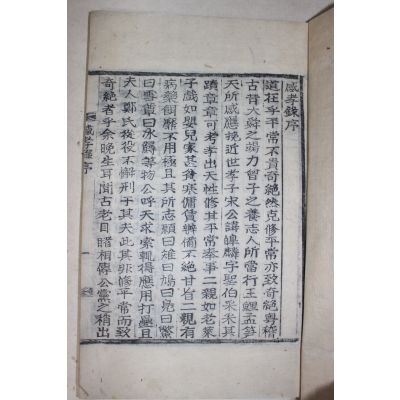 感孝錄序
道在乎平常不貴奇絶然克修平常亦致奇絶粤稽
古昔大舜之竭力曾子之養志人所當行王鯉孟笋
天所感應挽近世孝子宋公諱麟字聖伯采采其
蹟章章可考孝出天性修其平常奉事二親如老萊
子戱如嬰兒家甚寒傭賃辦備不絶甘旨二親有
病藥餌靡不用極且其所志願曰雉曰鳩曰曰
曰雪曰氷等物公呼天求索輒得應用打疊且
夫人鄭氏役不解刑于其夫此其非修平常而致
奇絶者乎余晩生耳聞古老目睹相傳公之稍出
感孝錄序 一